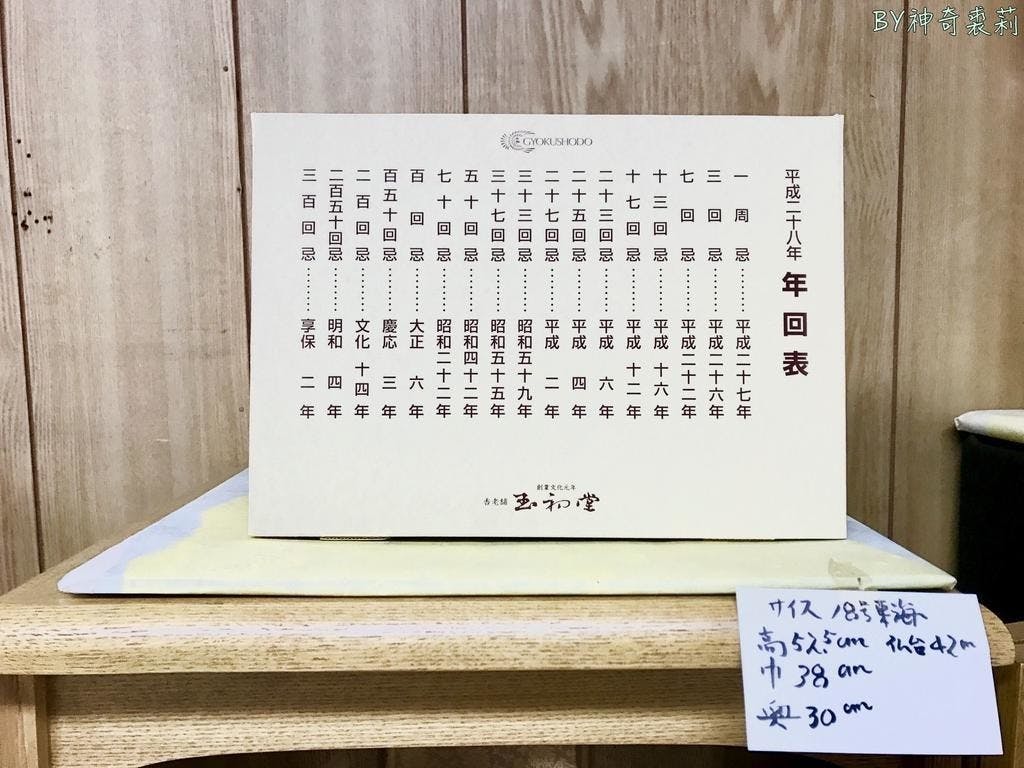 BY神奇裘莉
GYOKUSHODO
平成二十八年 年回表
一周忌………平成二十七年
三回忌………平成二十六年
七回忌………平成二十二年
十三回忌………平成十六年
十七回忌………平成十二年
二十三回忌………平成六年
二十五回忌………平成四年
二十七回忌………平成二年
三十三回忌………昭和五十九年
三十七回忌………昭和五十五年
五十回忌………昭和四十二年
七十回忌………昭和二十二年
百回忌………大正六年
百五十回忌………慶応三年
二百回忌………文化十四年
二百五十回忌………明和四年
三百回忌………享保二年
創業文化元年
香老舗 玉初堂
サイズ 18号東海
高 52.5cm 仏台 42
巾 38 cm
奥 30 cm